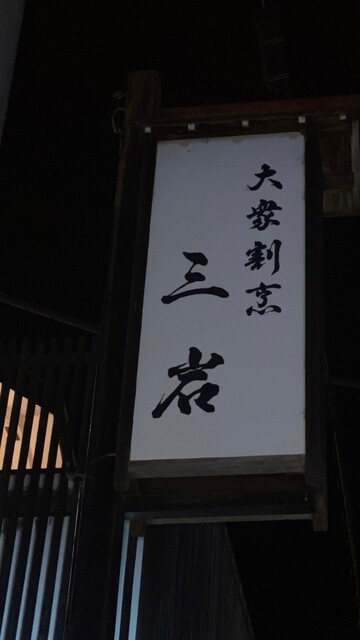 大衆割烹
三岩